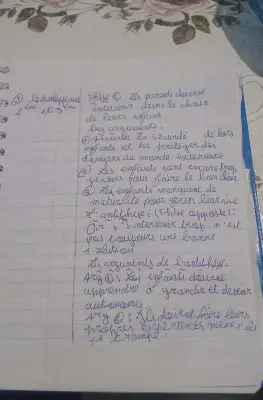 Thèse 1) Les parents doivent
intervenir dans le choix
de leurs enfants
Les arguments :
① Assurer la sécurité de leurs
enfants et les protéger des
dangers du monde extérieure
② Les enfants sont encore trop
jeunes pour faire le bon choix
③ Les enfants manquent de
maturité pour gérer leur vie
L'antithèse : (thèse opposée) :
Or, intervenir trop n'est
pas toujours une bonne
solution
Les arguments de l'antithèse
Arg ① : Les enfants doivent
apprendre à grandir et devenir
autonomes
Arg ② : Ils doivent faire leurs
propres expériences même s'ils
se trompe